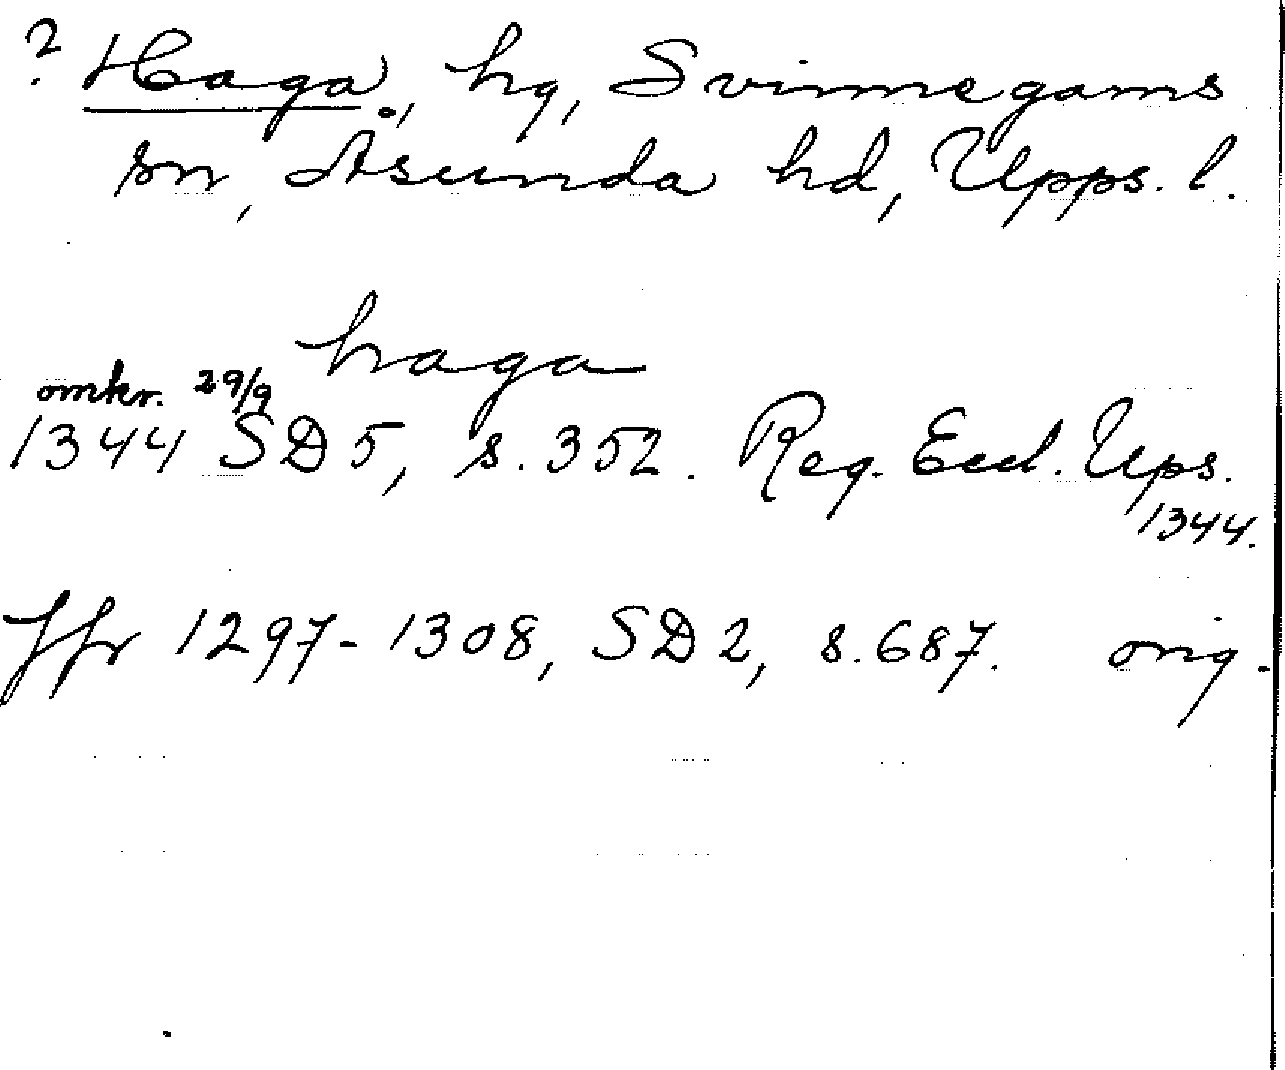 ? Haga, hg, Svinnegarns
sn, Åsunda hd, Upps. l.
haga
omkr. 29/9
1344 SD 5, s. 352. Reg. Eccl. Ups.
1344.
Jfr 1297-1308, SD 2, s. 687. orig.